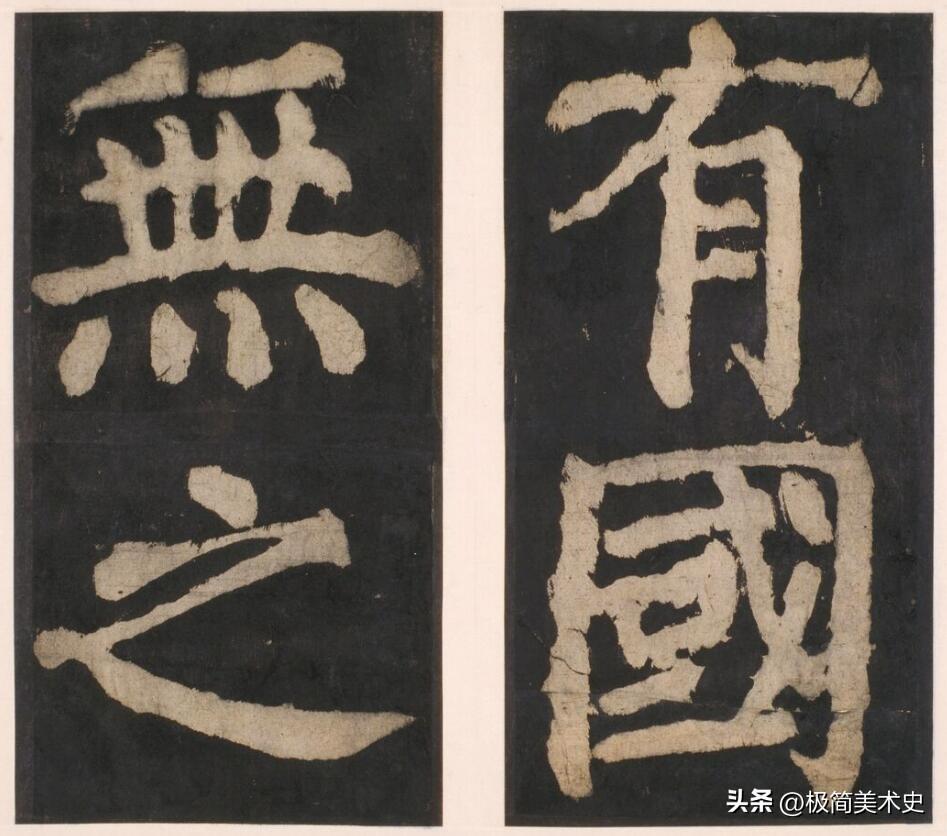 有國
無之
头条 @极简美术史